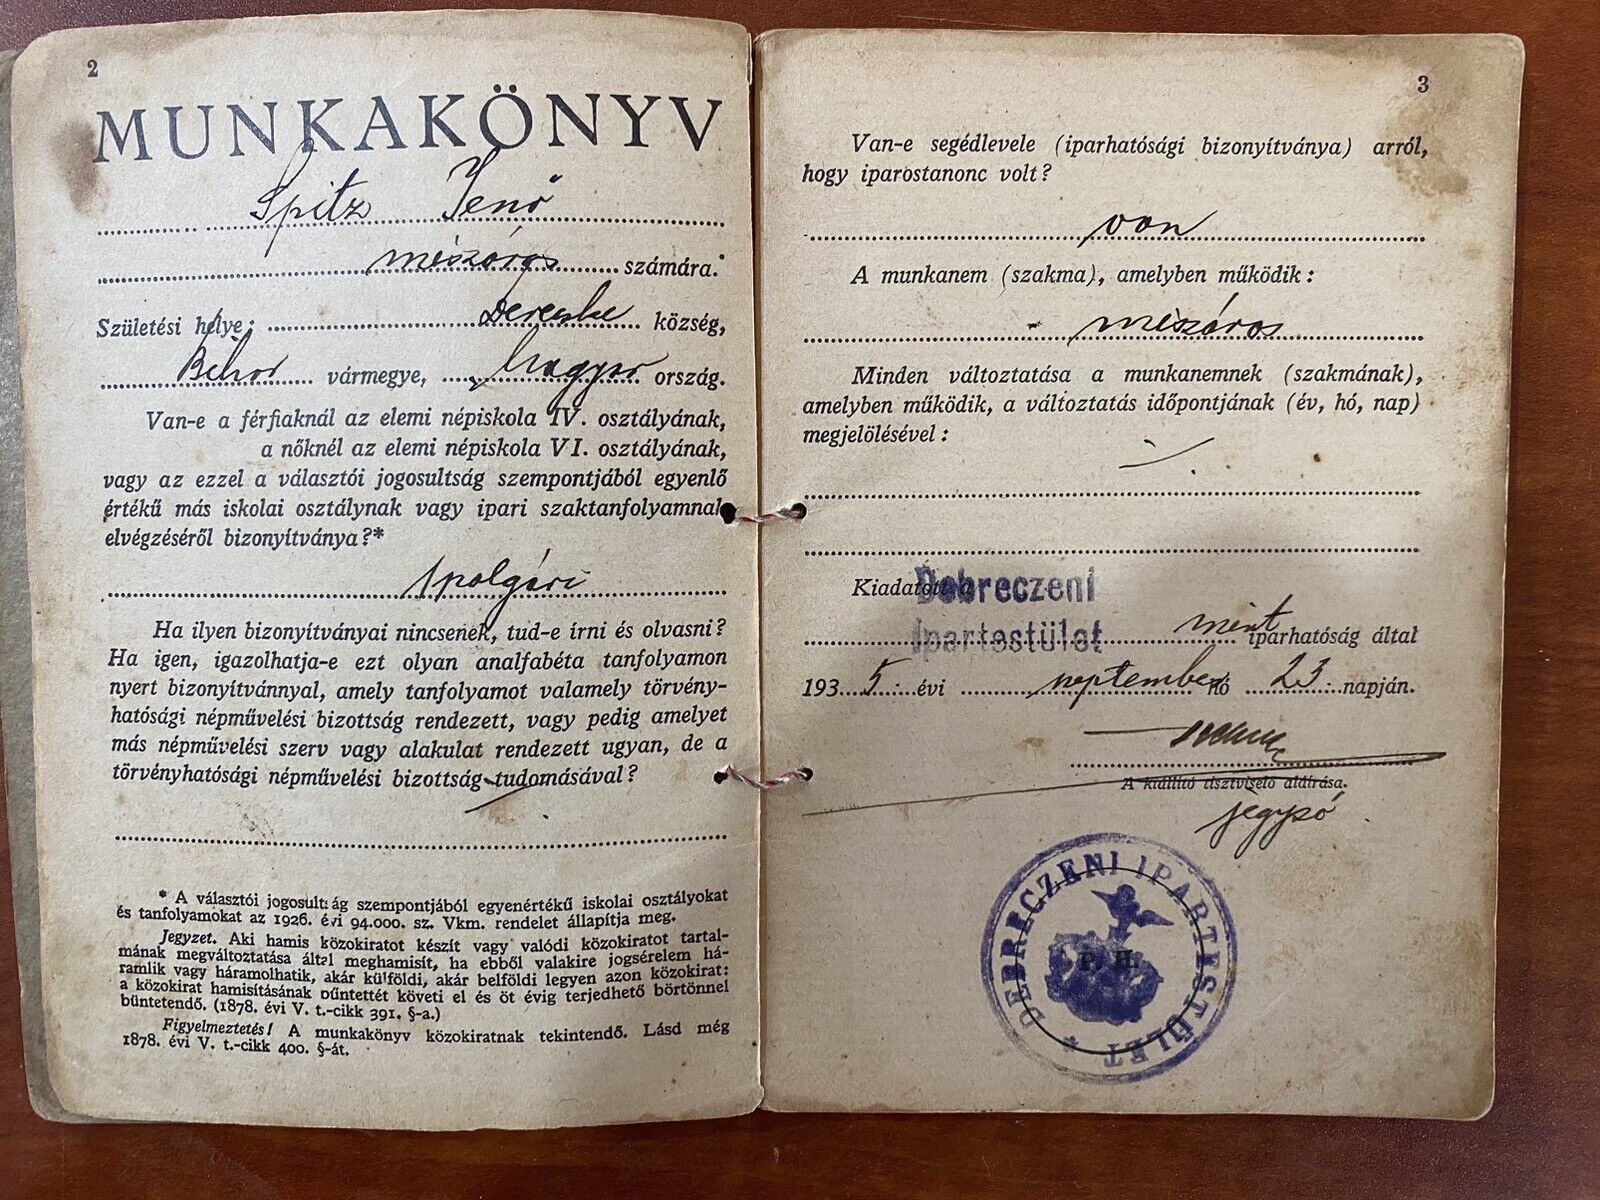 2
MUNKAKÖNYV
Spitz Jenő
mészáros számára.
Születési helye: Derecske község,
Bihar vármegye, Magyar ország.
Van-e a férfiaknál az elemi népiskola IV. osztályának,
a nőknél az elemi népiskola VI. osztályának,
vagy az ezzel a választói jogosultság szempontjából egyenlő
értékű más iskolai osztálynak vagy ipari szaktanfolyamnak
elvégzéséről bizonyítványa?*
polgári
Ha ilyen bizonyítványai nincsenek, tud-e írni és olvasni?
Ha igen, igazolhatja-e ezt olyan analfabéta tanfolyamon
nyert bizonyítvánnyal, amely tanfolyamot valamely törvény-
hatósági népművelési bizottság rendezett, vagy pedig amelyet
más népművelési szerv vagy alakulat rendezett ugyan, de a
törvényhatósági népművelési bizottság tudomásával?
* A választói jogosultság szempontjából egyenértékű iskolai osztályokat
és tanfolyamokat az 1926. évi 94.000. sz. Vkm. rendelet állapítja meg.
Jegyzet. Aki hamis közokiratot készít vagy valódi közokiratot tartal-
mának megváltoztatása által meghamisít, ha ebből valakire jogsérelem há-
ramlik vagy háramolhatik, akár külföldi, akár belföldi legyen azon közokirat:
a közokirat hamisításának bűntettét követi el és öt évig terjedhető börtönnel
büntetendő. (1878. évi V. t.-cikk 391. §-a.)
Figyelmeztetés! A munkakönyv közokiratnak tekintendő. Lásd még
1878. évi V. t.-cikk 400. §-át.
3
Van-e segédlevele (iparhatósági bizonyítványa) arról,
hogy iparostanonc volt?
van
A munkanem (szakma), amelyben működik:
mészáros
Minden változtatása a munkanemnek (szakmának),
amelyben működik, a változtatás időpontjának (év, hó, nap)
megjelölésével:
Kiadatott a Debreczeni
Ipartestület mint iparhatóság által
1935. évi september hó 23. napján.
A kiállító tisztviselő aláírása.
jegyző
DEBRECZENI IPARTESTÜLET *
P. H.